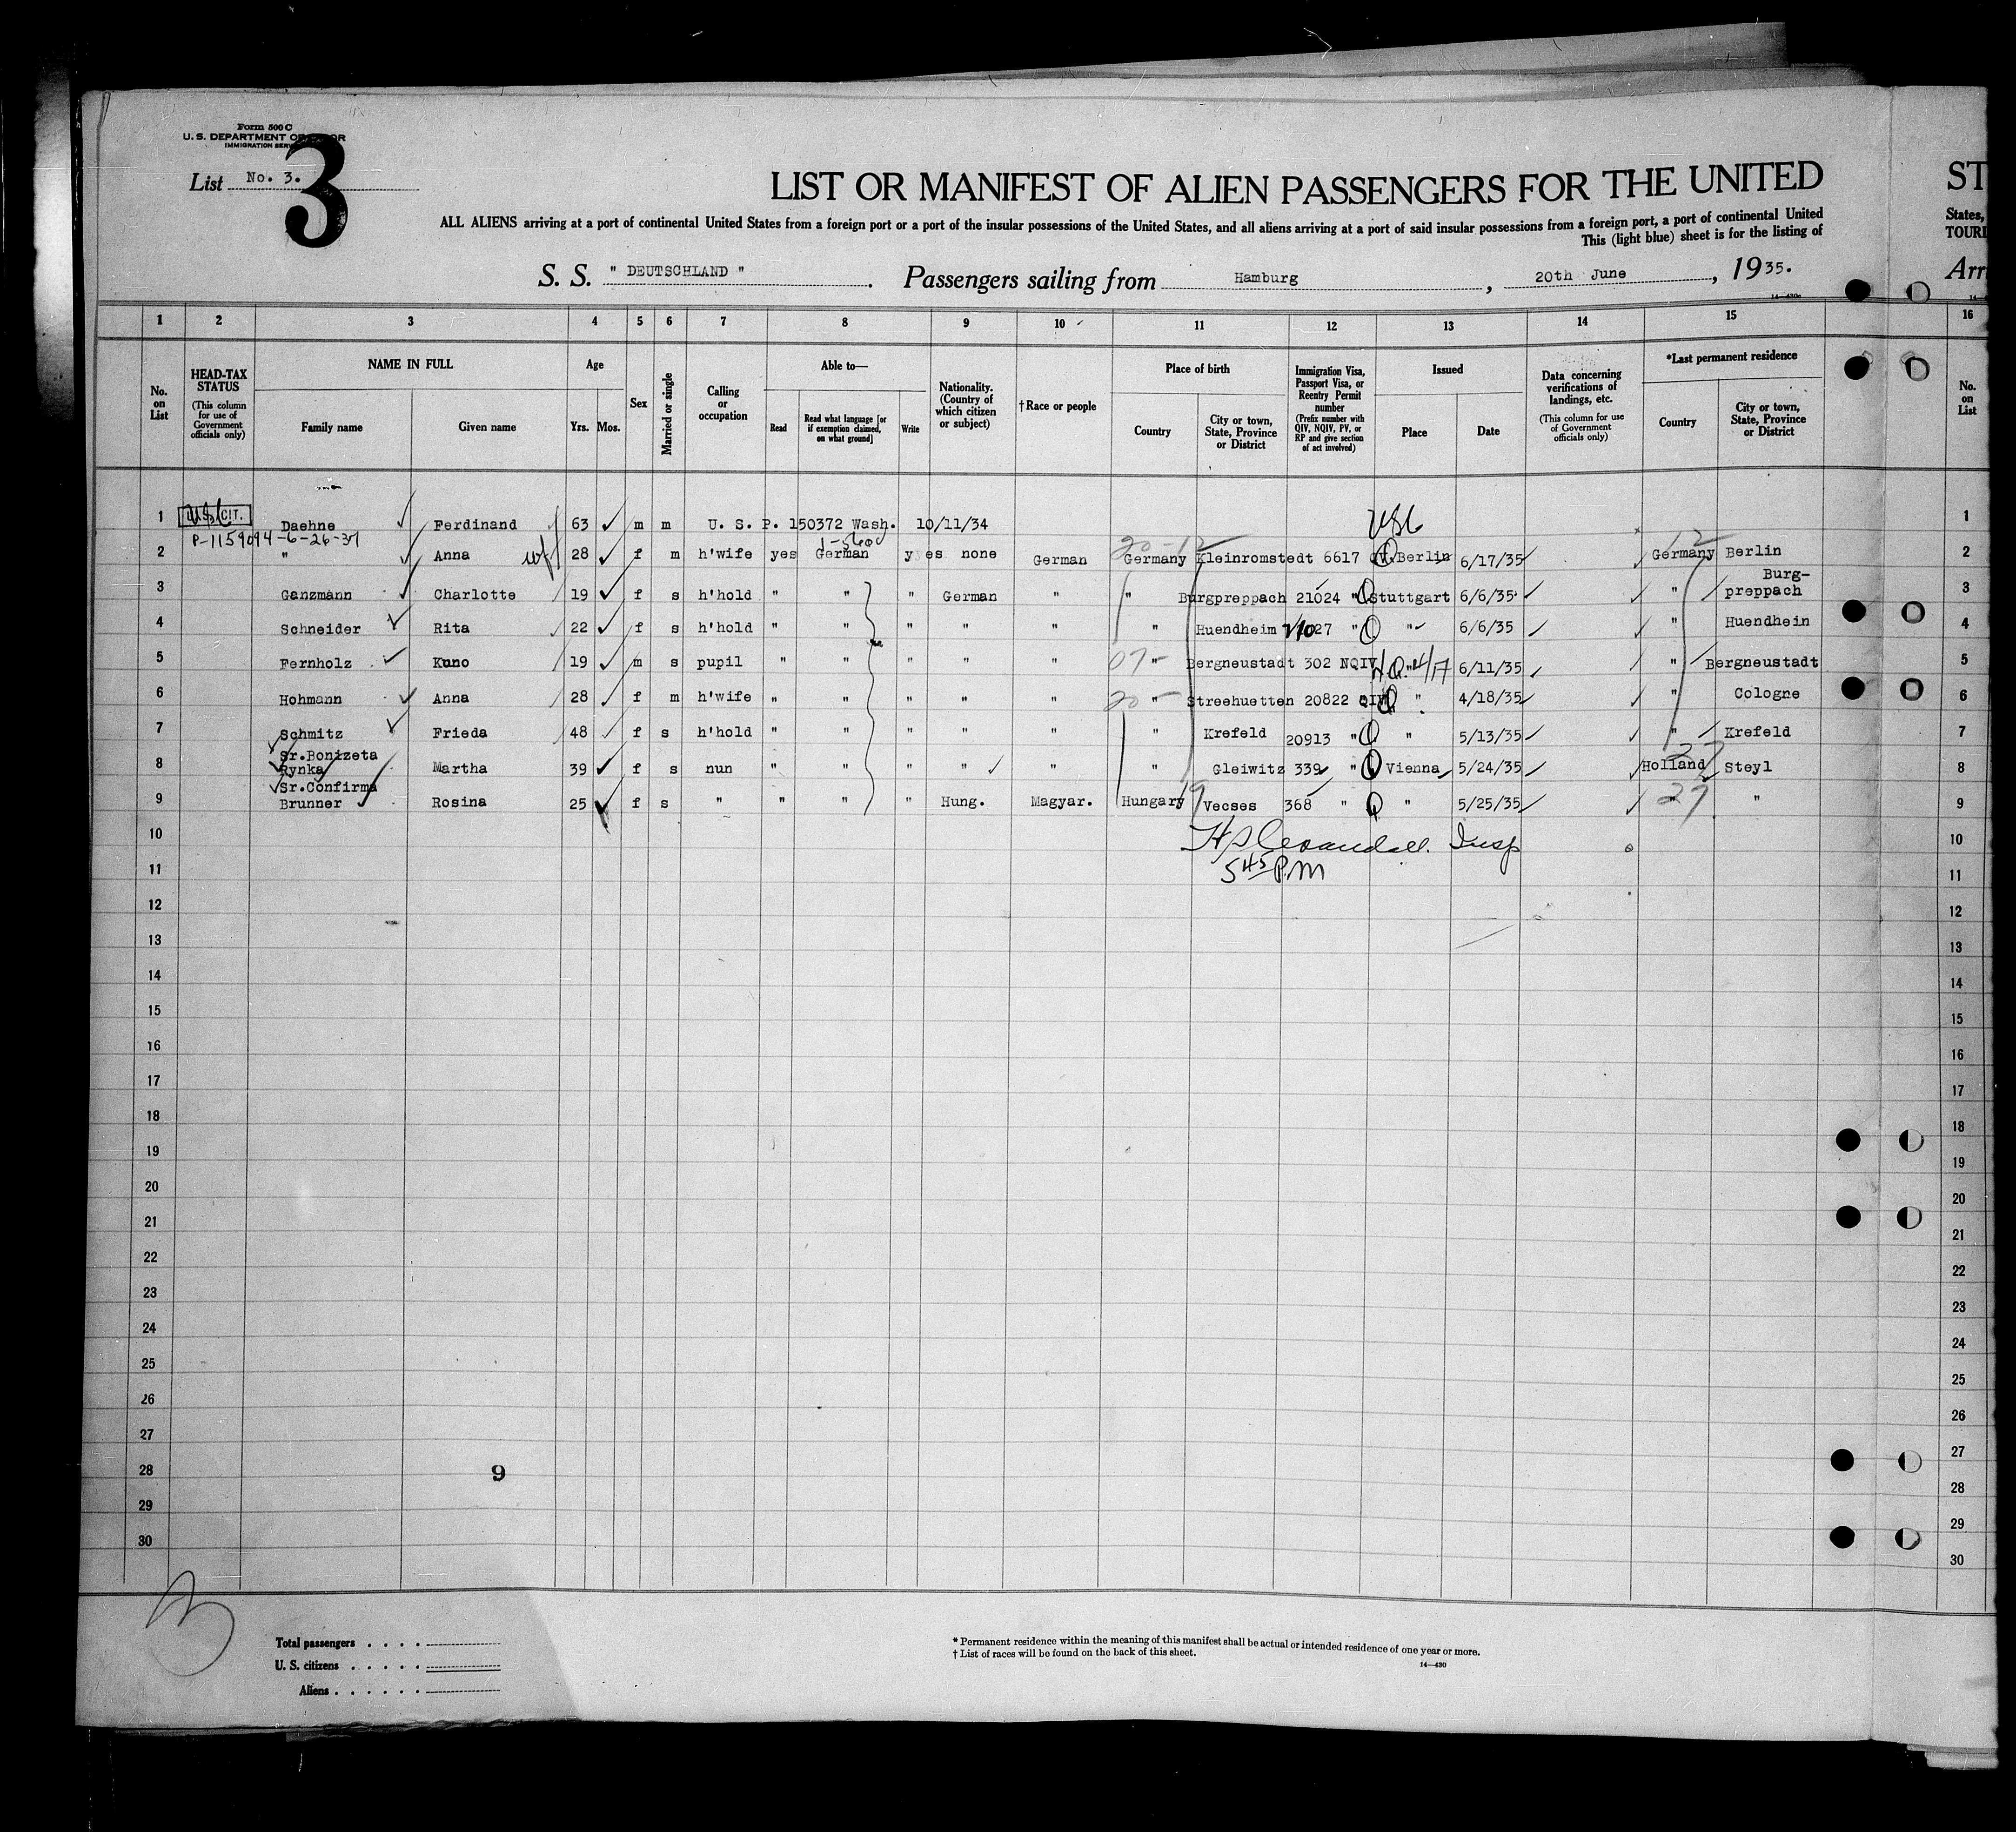 Form 500 C
U. S. DEPARTMENT OF LABOR
IMMIGRATION SERV
3
List No. 3.
LIST OR MANIFEST OF ALIEN PASSENGERS FOR THE UNITED
ST
ALL ALIENS arriving at a port of continental United States from a foreign port or a port of the insular possessions of the United States, and all aliens arriving at a port of said insular possessions from a foreign port, a port of continental United
States,
This (light blue) sheet is for the listing of
TOURI
S. S. " DEUTSCHLAND ". Passengers sailing from Hamburg, 20th June, 1935.
Arr
14—430c
1 2 3 4 5 6 7 8 9 10 11 12 13 14 15 16
No. on List
HEAD-TAX STATUS (This column for use of Government officials only)
NAME IN FULL
Family name Given name
Age Yrs. Mos.
Sex
Married or single
Calling or occupation
Able to—
Read Read what language [or if exemption claimed, on what ground] Write
Nationality. (Country of which citizen or subject)
†Race or people
Place of birth
Country City or town, State, Province or District
Immigration Visa, Passport Visa, or Reentry Permit number (Prefix number with QIV, NQIV, PV, or RP and give section of act involved)
Issued
Place Date
Data concerning verifications of landings, etc. (This column for use of Government officials only)
*Last permanent residence
Country City or town, State, Province or District
No. on List
1 U.S. CIT. Daehne Ferdinand 63 m m U. S. P. 150372 Wash. 10/11/34 USC 1
P-1159094-6-26-37
2 " Anna 28 f m h'wife yes German yes none German Germany Kleinromstedt 6617 QIV. Berlin 6/17/35 Germany Berlin 2
3 Ganzmann Charlotte 19 f s h'hold " " " German " " Burgpreppach 21024 " Stuttgart 6/6/35 " Burg-preppach 3
4 Schneider Rita 22 f s h'hold " " " " " " Huendheim 27 " " 6/6/35 " Huendhein 4
5 Fernholz Kuno 19 m s pupil " " " " " 07- " Bergneustadt 302 NQIV " 6/11/35 " Bergneustadt 5
6 Hohmann Anna 28 f m h'wife " " " " " 20- " Streehuetten 20822 QIV " 4/18/35 " Cologne 6
7 Schmitz Frieda 48 f s h'hold " " " " " " Krefeld 20913 " " 5/13/35 " Krefeld 7
Sr.Bonizeta
8 Rynka Martha 39 f s nun " " " " " " Gleiwitz 339 " Vienna 5/24/35 Holland Steyl 8
Sr.Confirma
9 Brunner Rosina 25 f s " " " " Hung. Magyar. Hungary Vecses 368 " " 5/25/35 27 " 9
10 Insp 10
11 5 45 P.M 11
12 12
13 13
14 14
15 15
16 16
17 17
18 18
19 19
20 20
21 21
22 22
23 23
24 24
25 25
26 26
27 27
28 9 28
29 29
30 30
Total passengers . . . .
U. S. citizens . . . . .
Aliens . . . . . .
* Permanent residence within the meaning of this manifest shall be actual or intended residence of one year or more.
† List of races will be found on the back of this sheet.
14—430